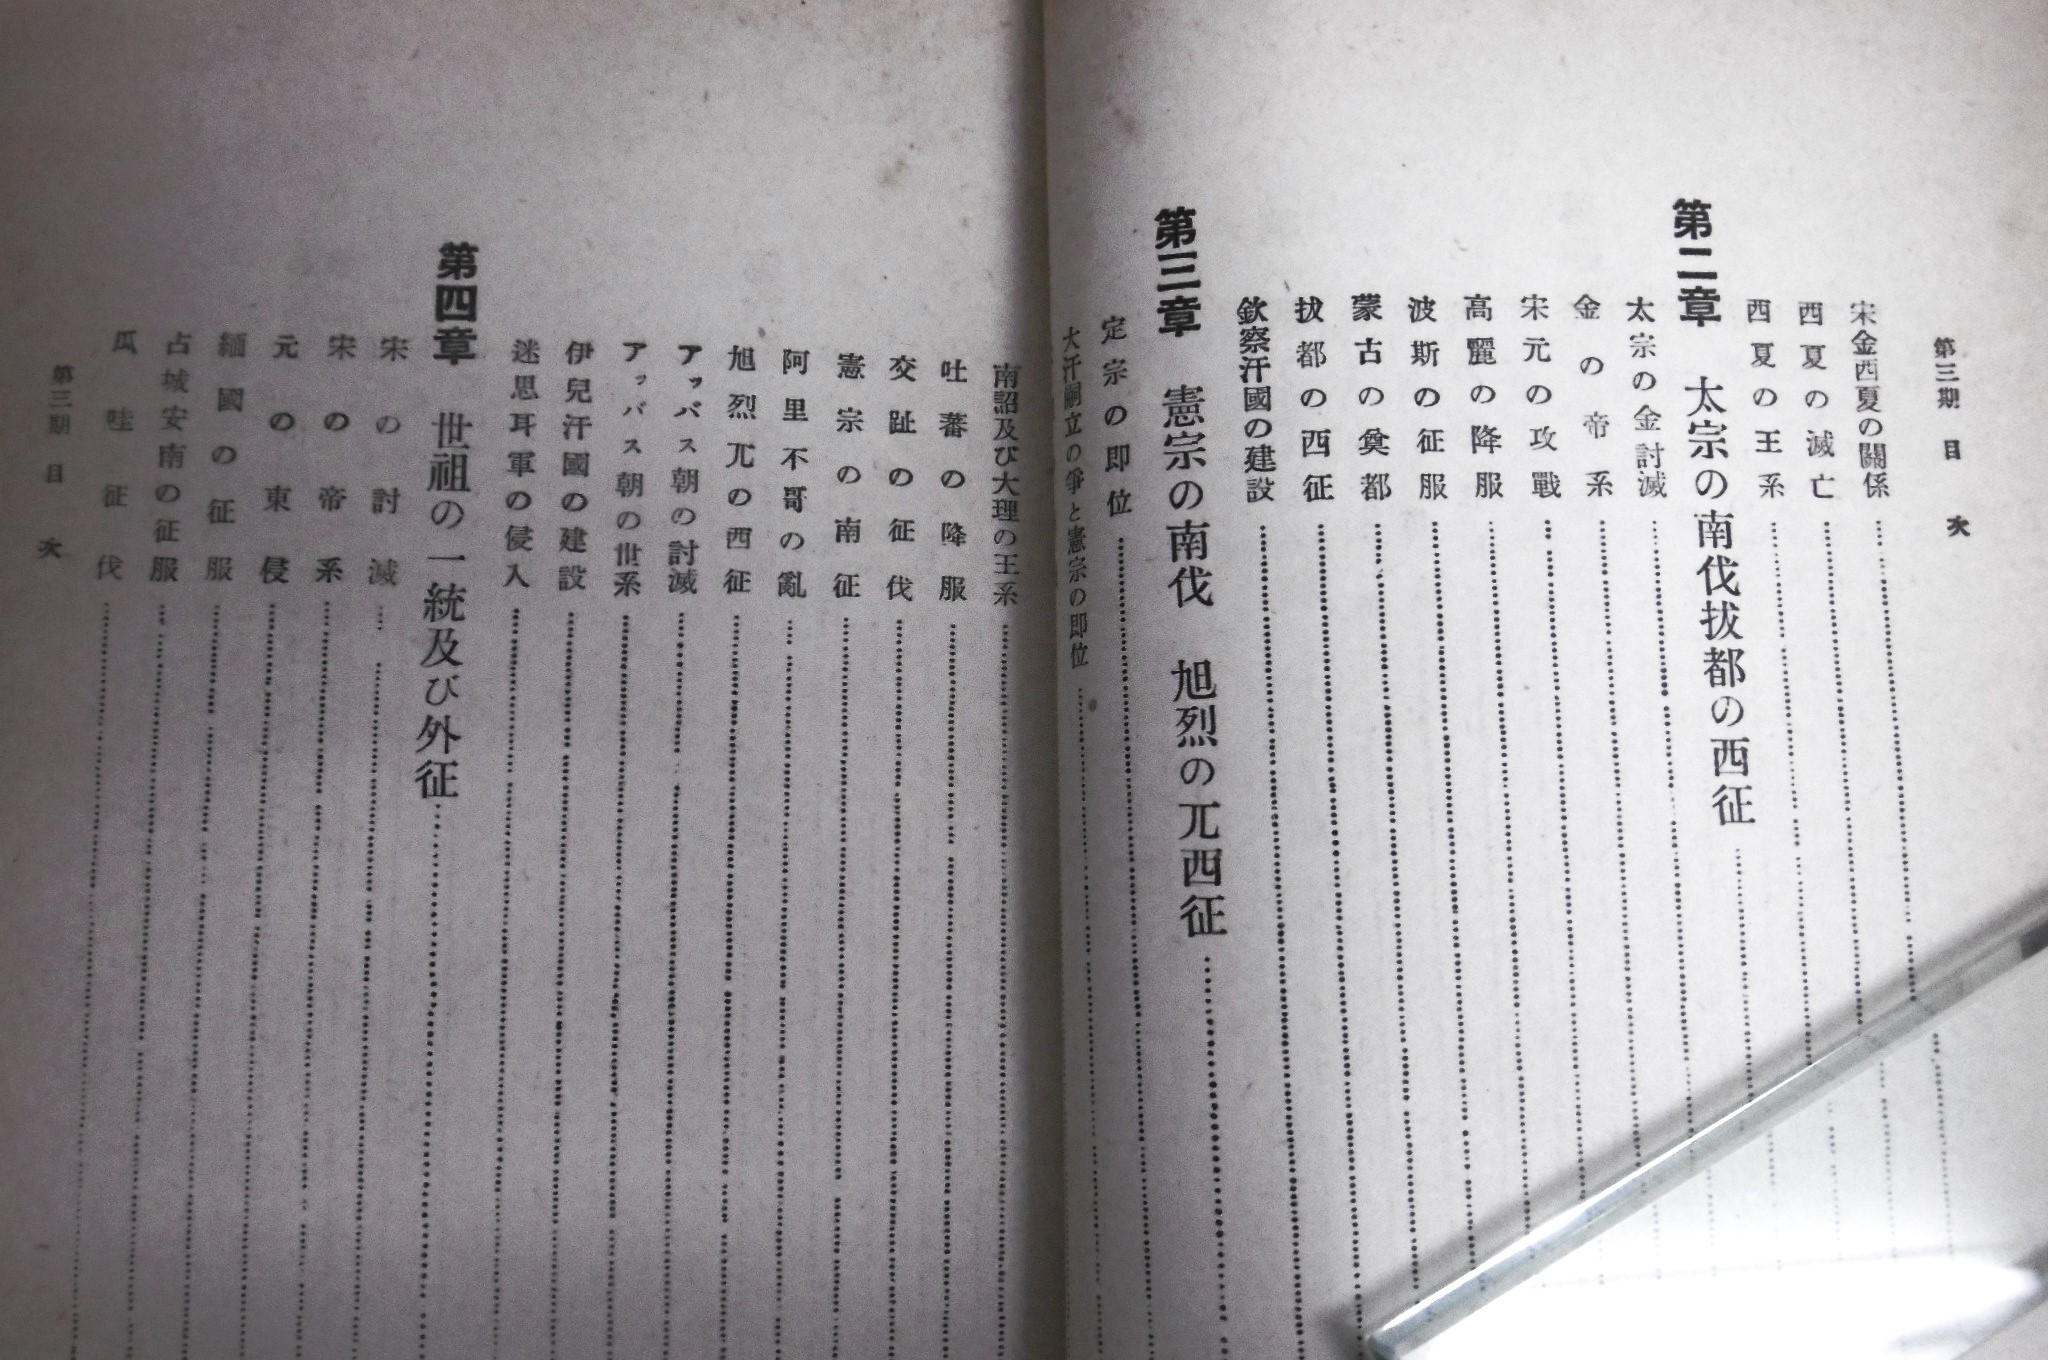 第三期 目次
宋金西夏の關係
西夏の滅亡
西夏の王系
第二章 太宗の南伐拔都の西征
太宗の金討滅
金の帝系
宋元の攻戰
高麗の降服
波斯の征服
蒙古の奠都
拔都の西征
欽察汗國の建設
第三章 憲宗の南伐 旭烈の兀西征
定宗の即位
大汗嗣立の爭と憲宗の即位
南詔及び大理の王系
吐蕃の降服
交趾の征伐
憲宗の南征
阿里不哥の亂
旭烈兀の西征
アッバス朝の討滅
アッバス朝の世系
伊兒汗國の建設
迷思耳軍の侵入
第四章 世祖の一統及び外征
宋の討滅
宋の帝系
元の東侵
緬國の征服
占城安南の征服
瓜哇征伐
第三期 目次